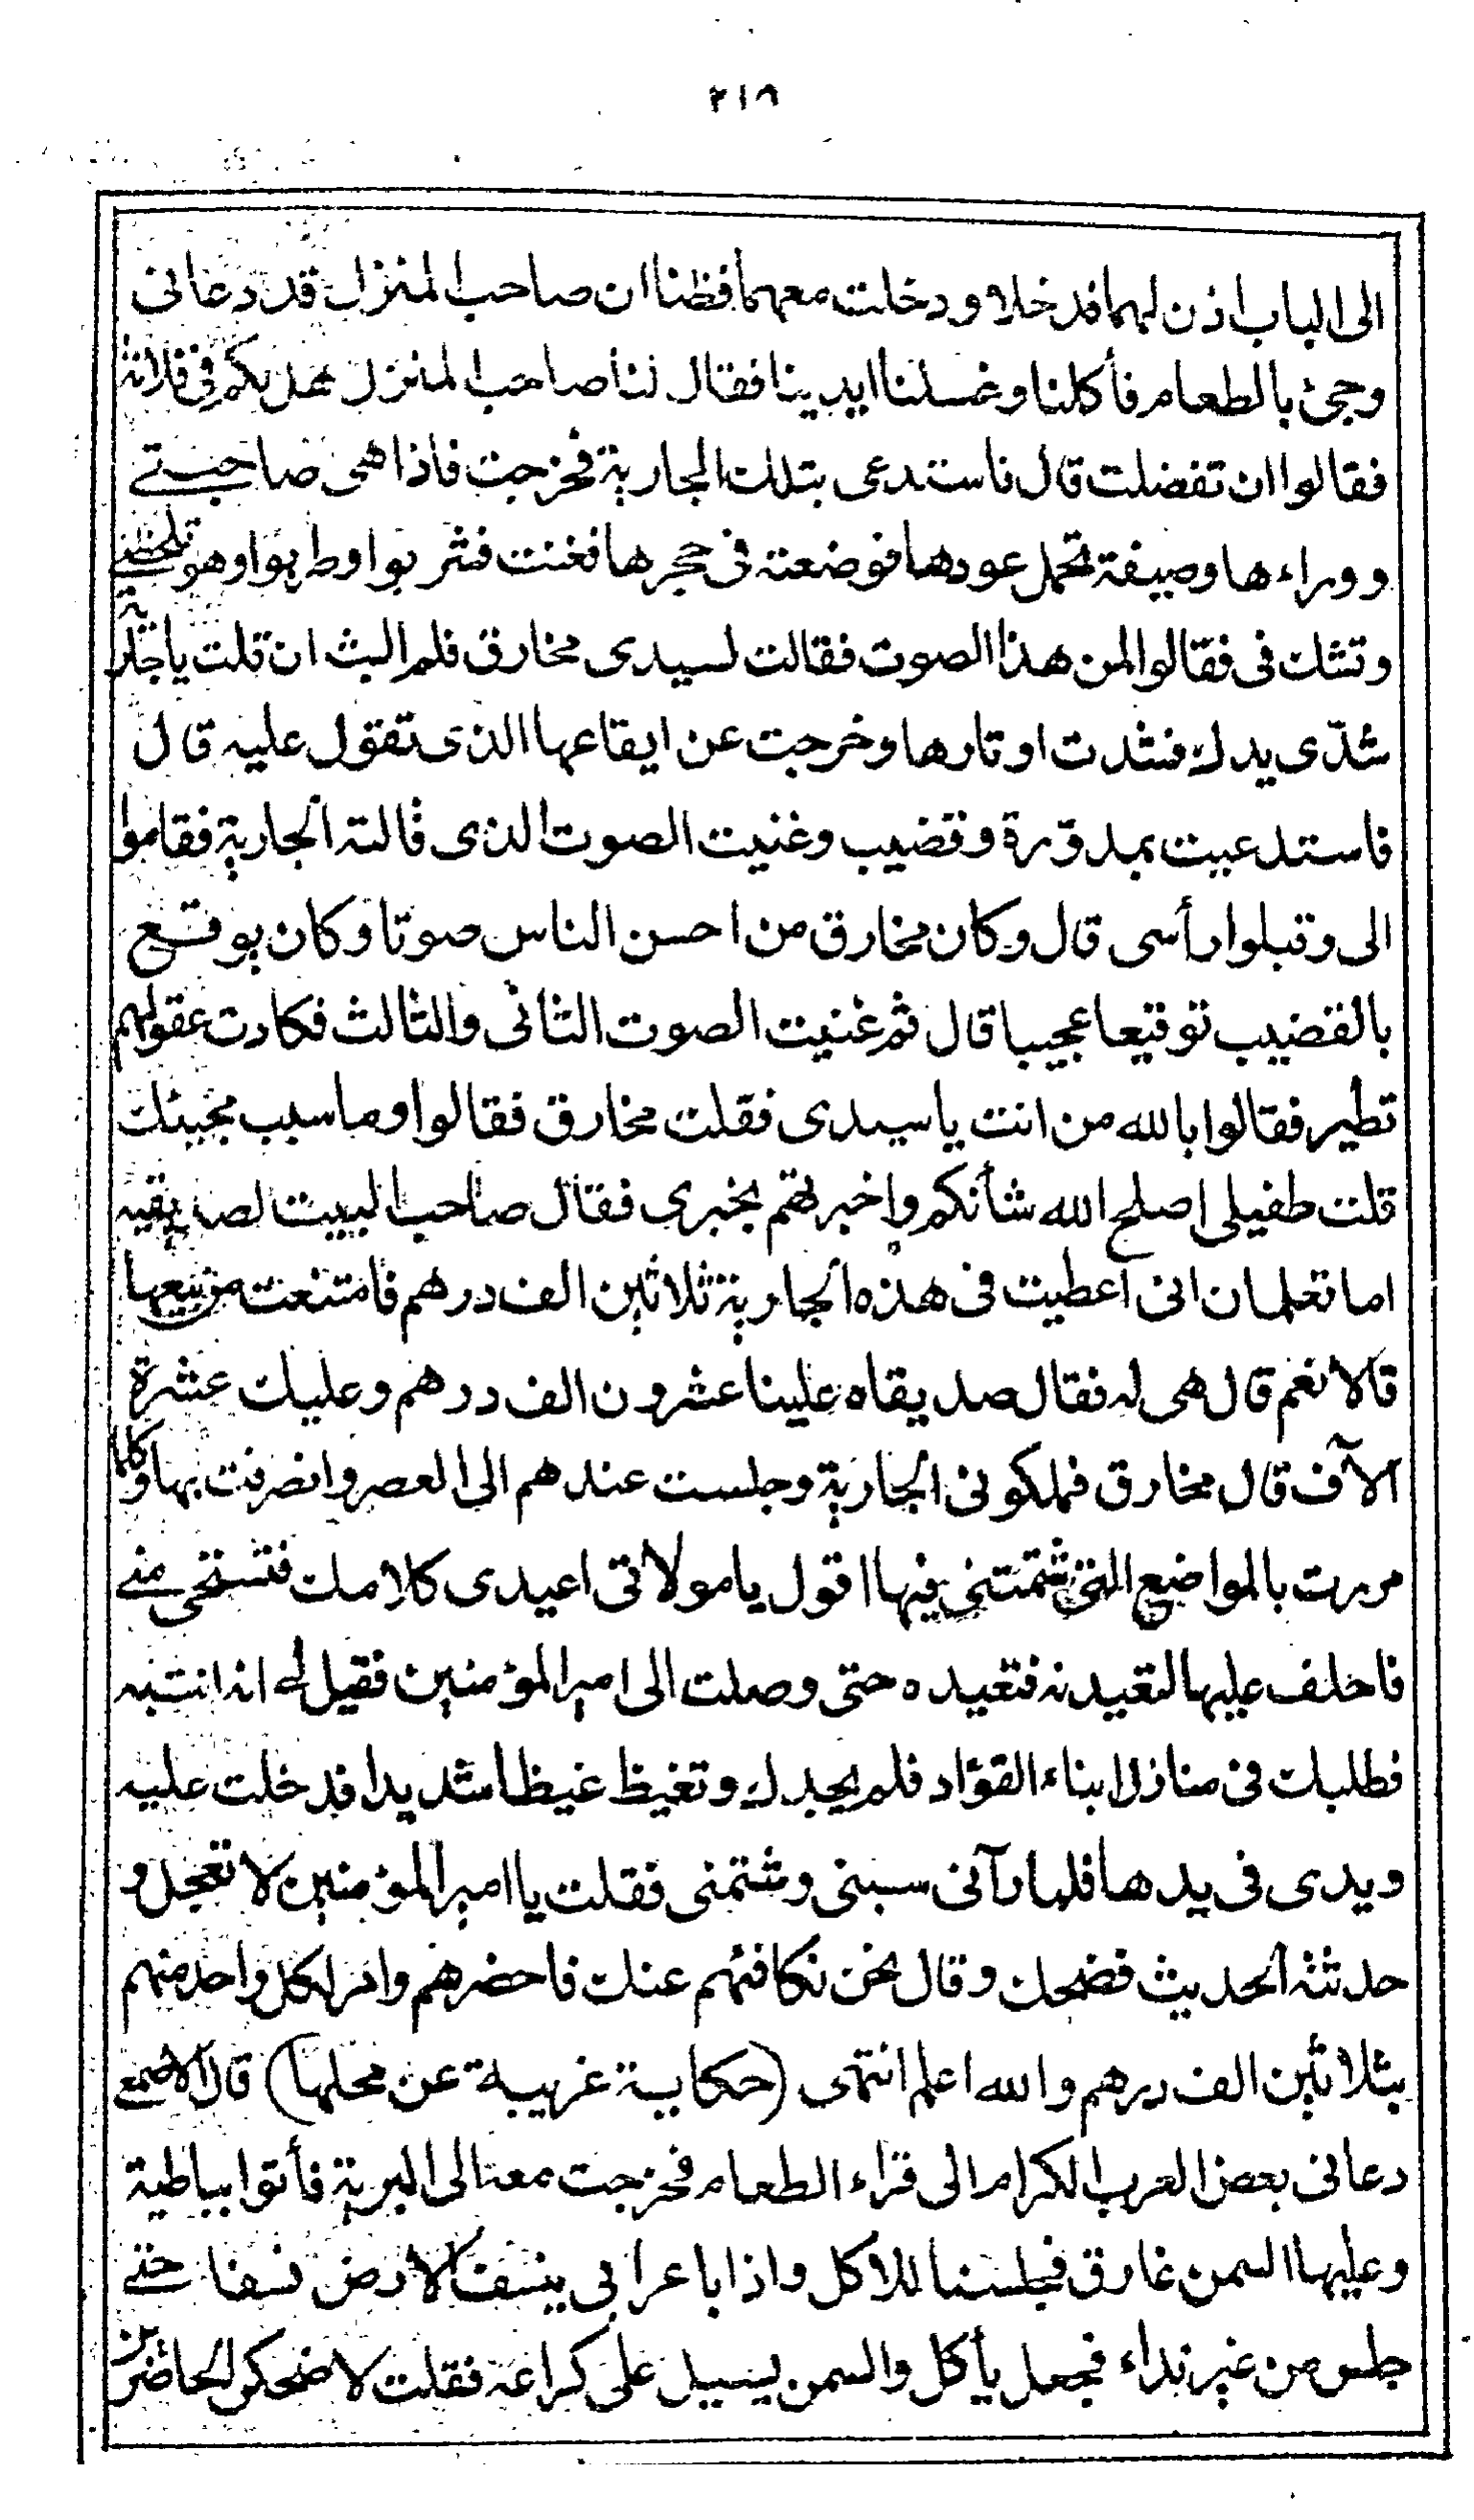 ٢١٨
الى الباب اذن لهما فدخلا ودخلت معهما فظنا ان صاحب المنزل قد دعانى
وجئ بالطعام فأكلنا وغسلنا ايدينا فقال لنا صاحب المنزل هل لكم فى فلانة
فقالوا ان تفضلت قال فاستدعى بتلك الجارية فخرجت فاذا هى صاحبتى
ووراءها وصيفة تحمل عودها فوضعته فى حجرها فغنت فشربوا وطربوا وهو تلحظنى
وتشك فى فقالوا لمن هذا الصوت فقالت لسيدى مخارق فلم البث ان قلت يا جارية
شدّى يدك فشدت اوتارها وخرجت عن ايقاعها الذى تقول عليه قال
فاستدعيت بمدوّرة وقضيب وغنيت الصوت الذى قالته الجارية فقاموا
الى وقبلوا رأسى قال وكان مخارق من احسن الناس صوتا وكان يوقع
بالقضيب توقيعا عجيبا قال ثم غنيت الصوت الثانى والثالث فكادت عقولهم
تطير فقالوا بالله من انت يا سيدى فقلت مخارق فقالوا وما سبب مجيئك
قلت طفيلى اصلح الله شأنكم واخبرتهم بخبرى فقال صاحب البيت لصديقيه
اما تعلمان انى اعطيت فى هذه الجارية ثلاثين الف درهم فامتنعت من بيعها
قالا نعم قال هى له فقال صديقاه علينا عشرون الف درهم وعليك عشرة
آلاف قال مخارق فملكونى الجارية وجلست عندهم الى العصر وانصرفت بها وكلما
مررت بالمواضع التى شتمتنى فيها اقول يا مولاتى اعيدى كلامك فتستحى منى
فاحلف عليها لتعيدنه فتعيده حتى وصلت الى امير المؤمنين فقيل لى انه انتبه
فطلبك فى منازل ابناء القوّاد فلم يجدك وتغيظ غيظا شديدا فدخلت عليه
ويدى فى يدها فلما رآنى سبنى وشتمنى فقلت يا امير المؤمنين لا تعجل و
حدثته الحديث فضحك وقال نحن نكافئهم عنك فاحضرهم وامر لكل واحد منهم
بثلاثين الف درهم والله اعلم انتهى (حكاية غريبة عن محلها) قال الاصمعى
دعانى بعض العرب الكرام الى قراء الطعام فخرجت معه الى البرية فأتوا بباطية
وعليها السمن غارق فجلسنا للاكل واذا باعرابى ينسف الارض نسفا حتى
جلس من غير نداء فجعل يأكل والسمن يسيل على كراعه فقلت لاضحكن الحاضرين